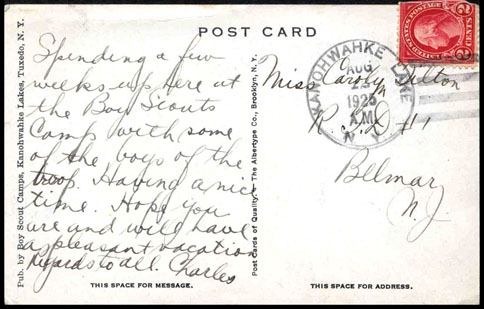 POST CARD
Spending a few
weeks up here at
the Boy Scouts
Camp with some
of the boys of the
troop. Having a nice
time. Hope you
are and will have
a pleasant vacation
Regards to all. Charles
THIS SPACE FOR MESSAGE.
Pub. by Boy Scout Camps, Kanohwahke Lakes, Tuxedo, N. Y.
Post Cards of Quality. - The Albertype Co., Brooklyn, N. Y.
KANOHWAHKE LAKE
AUG
25
1925
A.M.
N.Y.
UNITED STATES POSTAGE
2 CENTS 2
Miss Carolyn Tilton
R. F. D #1
Belmar
N. J.
THIS SPACE FOR ADDRESS.